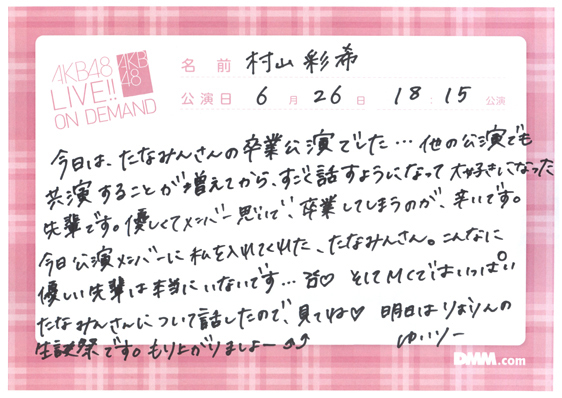 AKB48
LIVE!!
ON DEMAND
AKB
48
名前 村山彩希
公演日 6月26日 18:15公演
今日は、たなみんさんの卒業公演でした…他の公演でも
共演することが増えてから、すごく話すようになって大好きになった
先輩です。優しくてメンバー思いで、卒業してしまうのが、辛いです。
今日公演メンバーに私を入れてくれた、たなみんさん。こんなに
優しい先輩は本当にいないです… そしてMCではいっぱい
たなみんさんについて話したので、見てね♡ 明日はりおりんの
生誕祭です。もり上がりましょー⤴⤴ ゆいりー
DMM.com